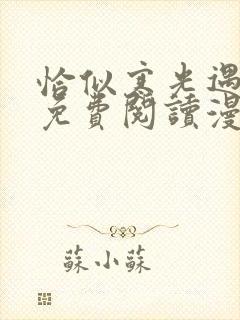 恰似寒光遇
免費閱讀漫
蘇小蘇